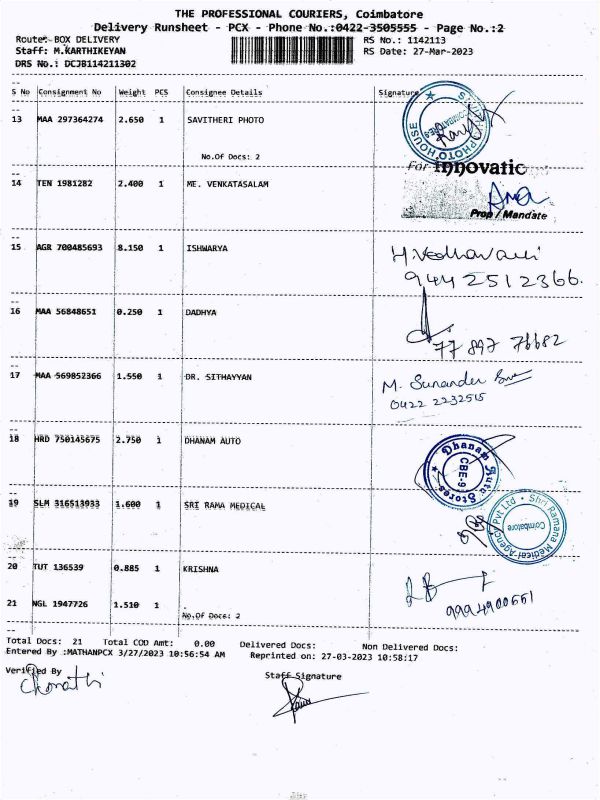 THE PROFESSIONAL COURIERS, Coimbatore
Delivery Runsheet - PCX - Phone No.:0422-3505555 - Page No.:2
Route:- BOX DELIVERY RS No.: 1142113
Staff: M.KARTHIKEYAN RS Date: 27-Mar-2023
DRS No.: DCJB114211302
S No Consignment No Weight PCS Consignee Details Signature
13 MAA 297364274 2.650 1 SAVITHERI PHOTO
PHOTO HOUSE
No.Of Docs: 2
For innovatic
14 TEN 1981282 2.400 1 ME. VENKATASALAM
Prop / Mandate
15 AGR 700485693 8.150 1 ISHWARYA
9442512366.
16 MAA 56848651 0.250 1 DADHYA
77 897 76682
17 MAA 569852366 1.550 1 DR. SITHAYYAN
M. Sunander
0422 2232515
18 HRD 750145675 2.750 1 DHANAM AUTO
Dhanam Auto Stores
CBE-9
19 SLM 316513933 1.600 1 SRI RAMA MEDICAL
Shri Ramana Medical Agency Pvt Ltd
Coimbatore
20 TUT 136539 0.885 1 KRISHNA
9994900551
21 NGL 1947726 1.510 1 .
No.Of Docs: 2
Total Docs: 21 Total COD Amt: 0.00 Delivered Docs: Non Delivered Docs:
Entered By :MATHANPCX 3/27/2023 10:56:54 AM Reprinted on: 27-03-2023 10:58:17
Verified By Staff Signature